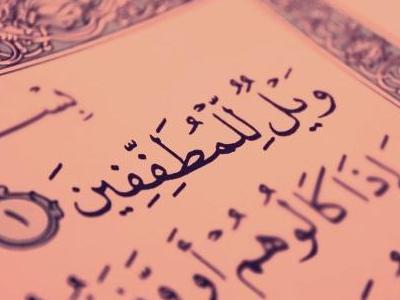 بِسْ
وَيْلٌ لِّلْمُطَفِّفِينَ ١
إِذَا كَالُوهُمْ أَو